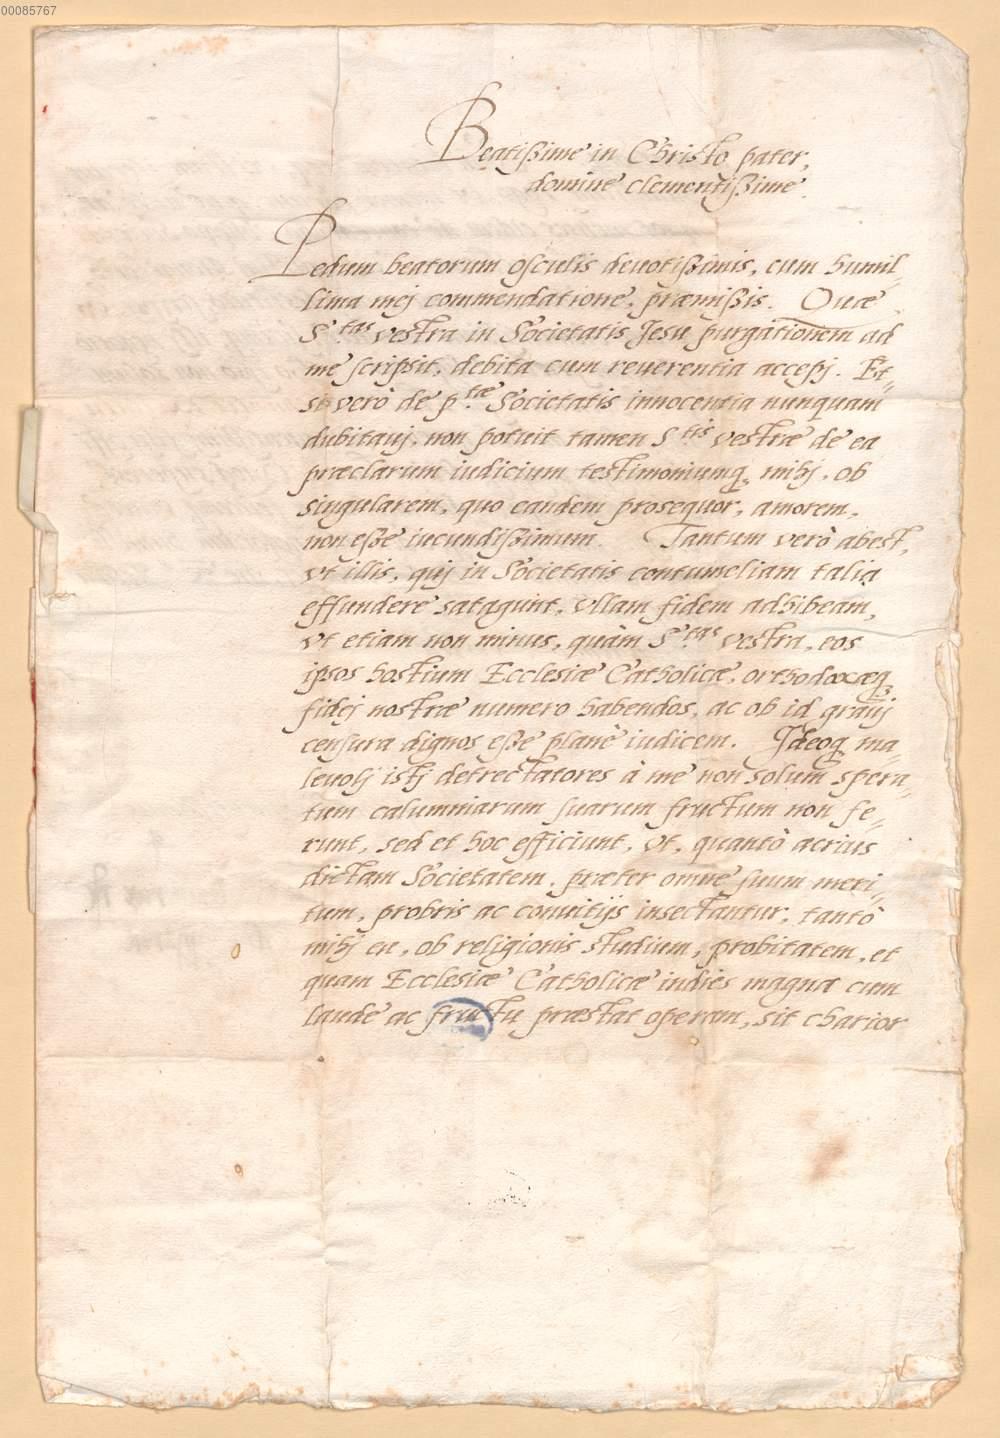 00085767
Beatißime in Christo pater,
domine clementißime.
Pedum beatorum osculis deuotißimis, cum humil-
lima mej commendatione, præmißis. Quæ
S.tas vestra in Societatis Jesu purgationem ad
me scripsit, debita cum reuerentia accepj. Et-
si verò de p.tæ Societatis innocentia nunquam
dubitauj, non potuit tamen S.tis vestræ de ea
præclarum iudicium testimoniumq, mihj, ob
singularem, quo eandem prosequor, amorem,
non eße iucundißimum. Tantum verò abest,
vt illis, quj in Societatis contumeliam talia
effundere satagunt, vllam fidem adhibeam,
vt etiam non minus, quàm S.tas vestra, eos
ipsos hostium Ecclesiæ Catholicæ, orthodoxæq,
fidej nostræ numero habendos, ac ob id grauj
censura dignos eße planè iudicem. Jdeoq, ma-
leuolj istj detrectatores à me non solùm spera-
tum calumniarum suarum fructum non fe-
runt, sed et hoc efficiunt, vt, quantò acrius
dictam Societatem, præter omne suum meri-
tum, probris ac conuitijs insectantur, tantò
mihj ea, ob religionis studium, probitatem, et
quam Ecclesiæ Catholicæ indies magna cum
laude ac fructu præstat operam, sit charior